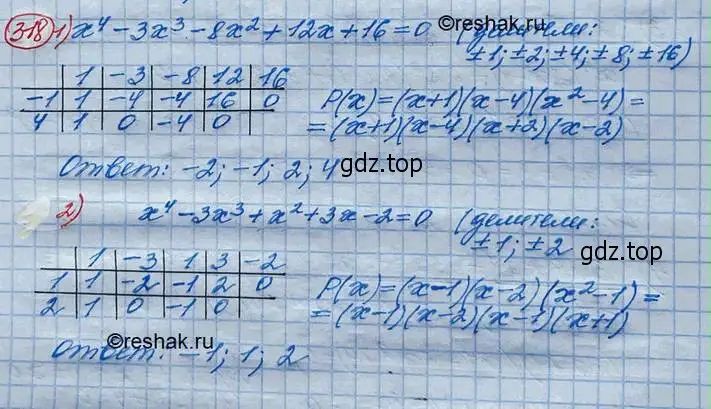 ©reshak.ru
318 1) x⁴ - 3x³ - 8x² + 12x + 16 = 0 (делители:
±1; ±2; ±4; ±8; ±16)
1 -3 -8 12 16
-1 1 -4 -4 16 0
4 1 0 -4 0
P(x) = (x+1)(x-4)(x²-4) =
= (x+1)(x-4)(x+2)(x-2)
Ответ: -2; -1; 2; 4
gdz.top
2) x⁴ - 3x³ + x² + 3x - 2 = 0 (делители:
±1; ±2
gdz.top
1 -3 1 3 -2
1 1 -2 -1 2 0
2 1 0 -1 0
P(x) = (x-1)(x-2)(x²-1) =
= (x-1)(x-2)(x-1)(x+1)
©reshak.ru
Ответ: -1; 1; 2